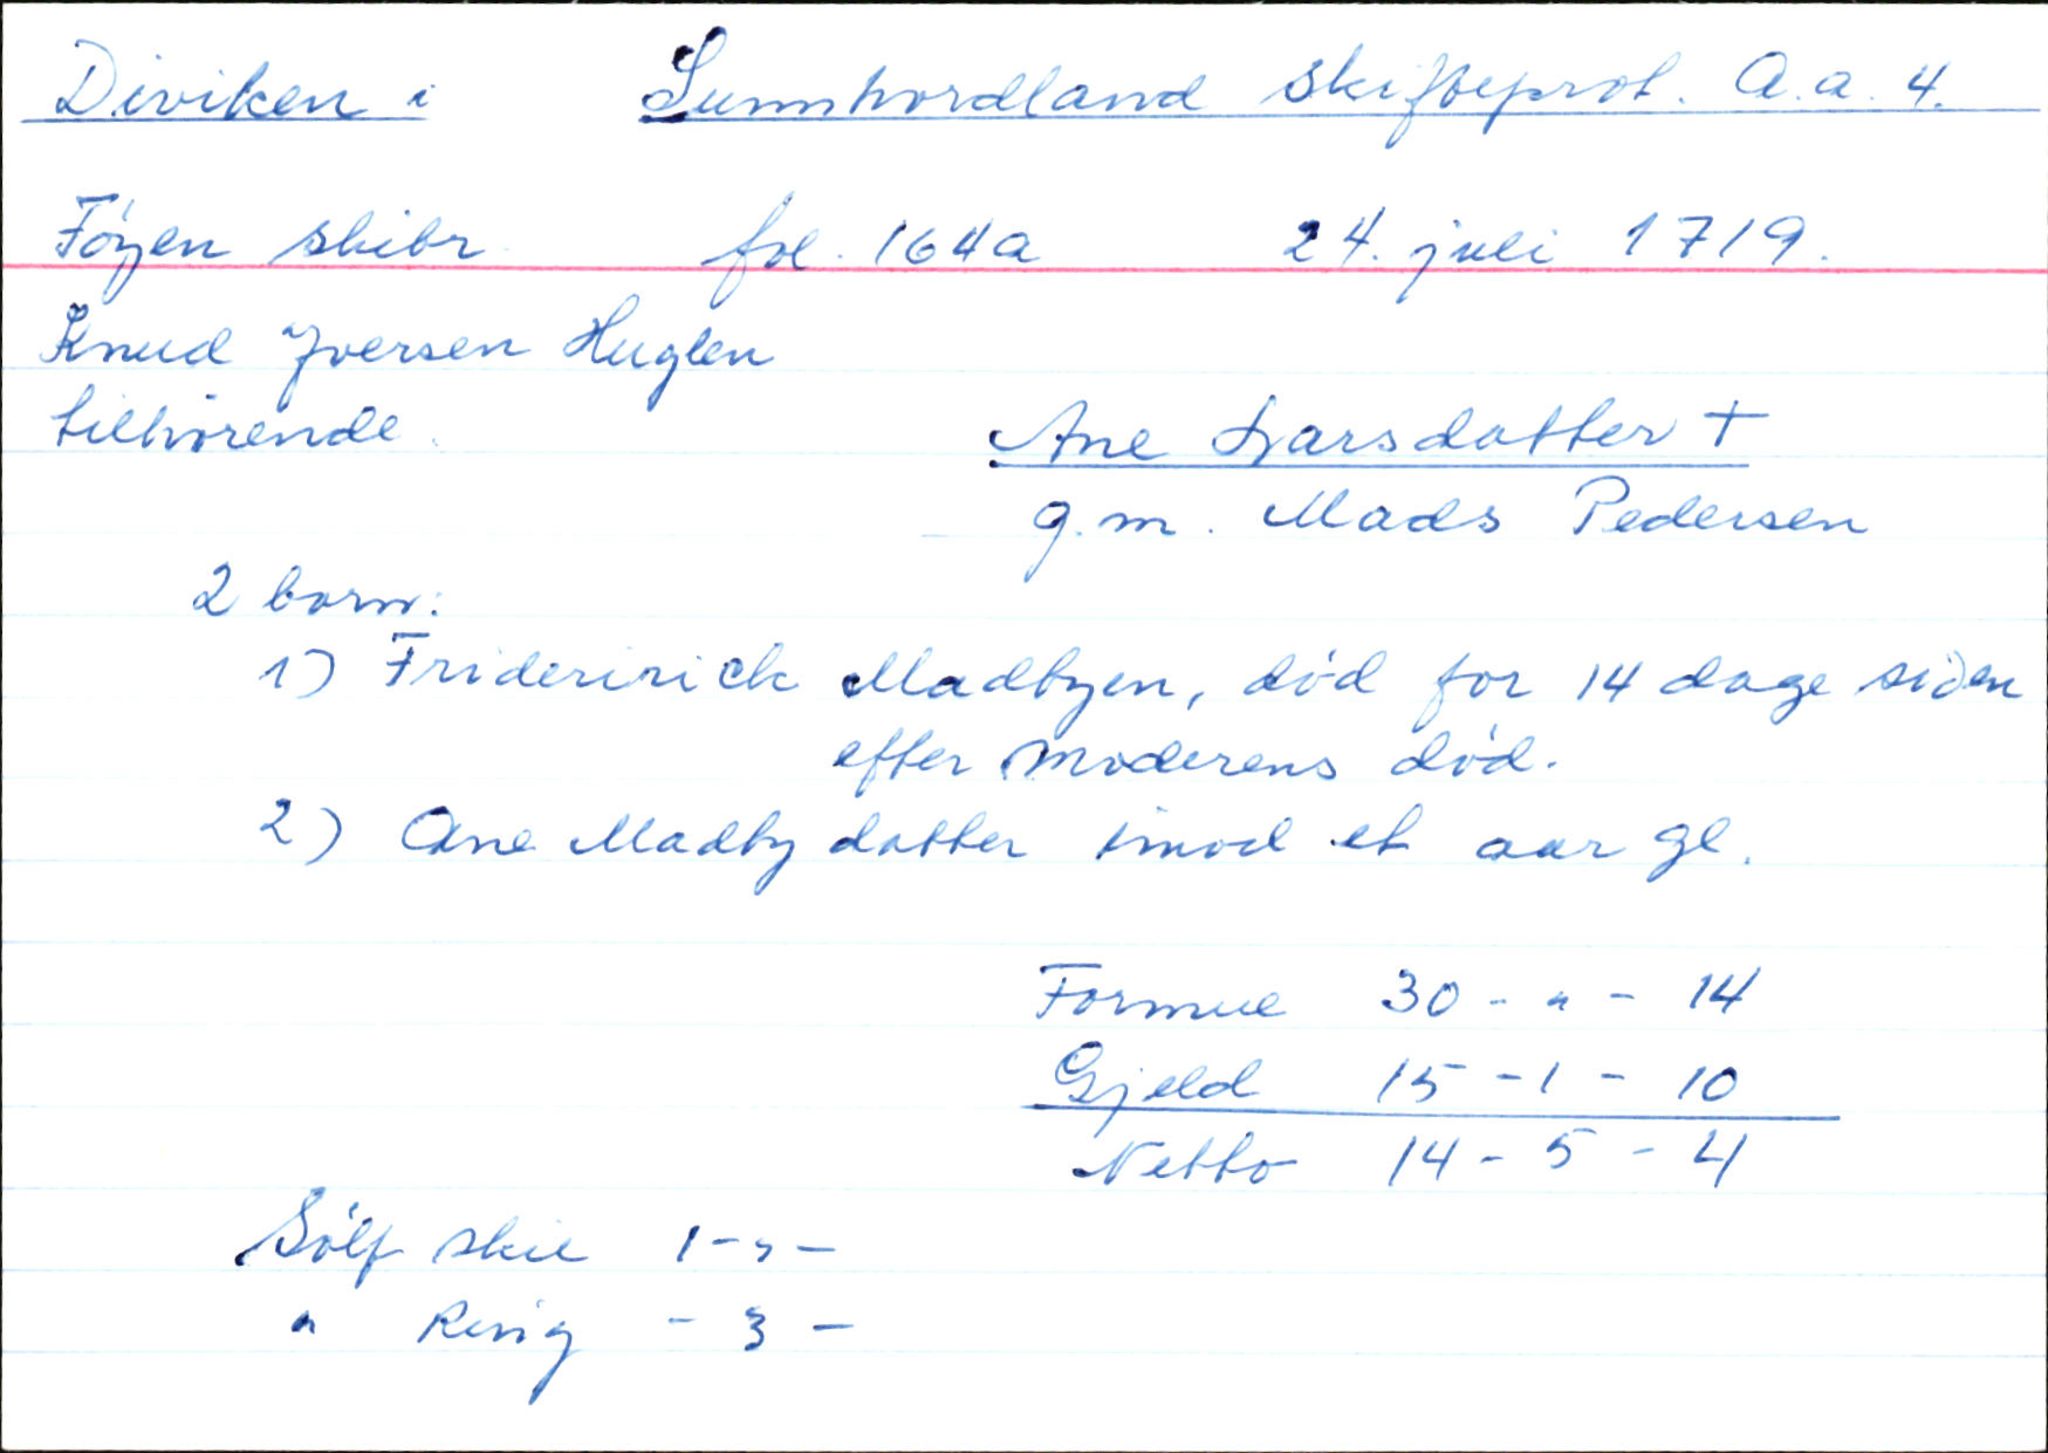 Diviken i Sunnhordland skifteprot. A.a. 4.
Föyen skibr fol. 164a 24. juli 1719.
Knud Iversen Huglen
tilhörende.
Ane Larsdatter †
g.m. Mads Pedersen
2 born:
1) Fridericick Madtzen, död for 14 dage siden
efter moderens död.
2) Ane Madtzdatter imod et aar gl.
Formue 30 - " - 14
Gjeld 15 - 1 - 10
Netto 14 - 5 - 4
Sölf skie 1 - " -
" Ring - 3 -